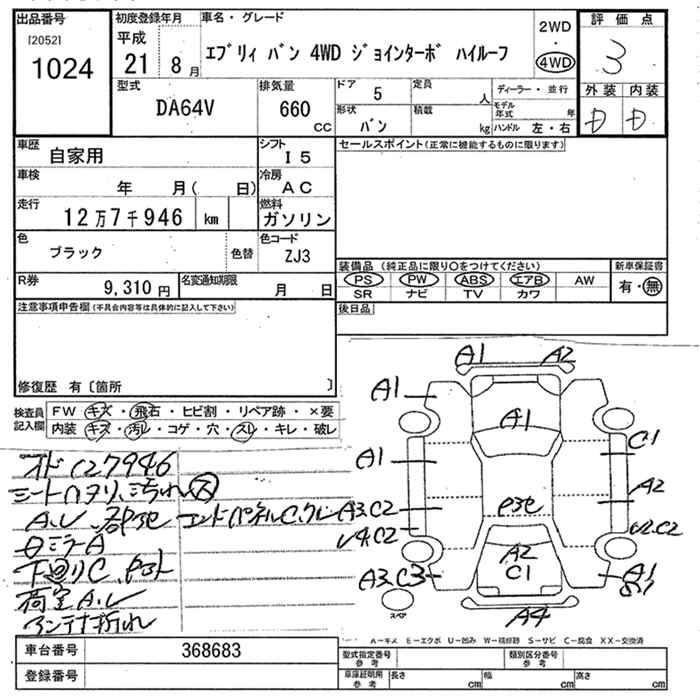 出品番号 初度登録年月 車名・グレード 2WD 評価点
[2052] 平成 ・
1024 21 8月 エブリィ バン 4WD ジョインターボ ハイルーフ 4WD 3
型式 排気量 ドア 5 定員 人 ディーラー・並行 外装 内装
DA64V 660 CC 形状 バン 積載 kg モデル年式 年 D D
ハンドル 左・右
車歴 自家用 シフト I5 セールスポイント(正常に機能するものに限ります)
車検 年 月( 日) 冷房 AC
走行 12万7千946 km 燃料 ガソリン
色 ブラック 色替 色コード ZJ3
装備品 (純正品に限り○をつけてください) 新車保証書
R券 9,310円 名変通知期限 月 日 PS PW ABS エアB AW 有・無
SR ナビ TV カワ
注意事項申告欄(不具合内容等は具体的に記入して下さい) 後日品
修復歴 有〔箇所 〕
検査員記入欄 FW キズ・飛石・ヒビ割・リペア跡・×要
内装 キズ・汚レ・コゲ・穴・スレ・キレ・破レ
A1 A2
A1 A1
A1 C1
A2
オド127946
シートヘタリ、汚れ
A3.C2 P3セ
エンドパネルC,クレ
V4.C2 V2.C2
ロミラーA
A2
C1
下廻りC
A3.C3 A1 S1
荷室A.レ
アンテナ折れ
スペア A4
A-キズ E-エクボ U-凹み W-補修跡 S-サビ C-腐食 XX-交換済
車台番号 368683 型式指定番号 参考 類別区分番号 参考
登録番号 車庫証明用 参考 長さ cm 幅 cm 高さ cm